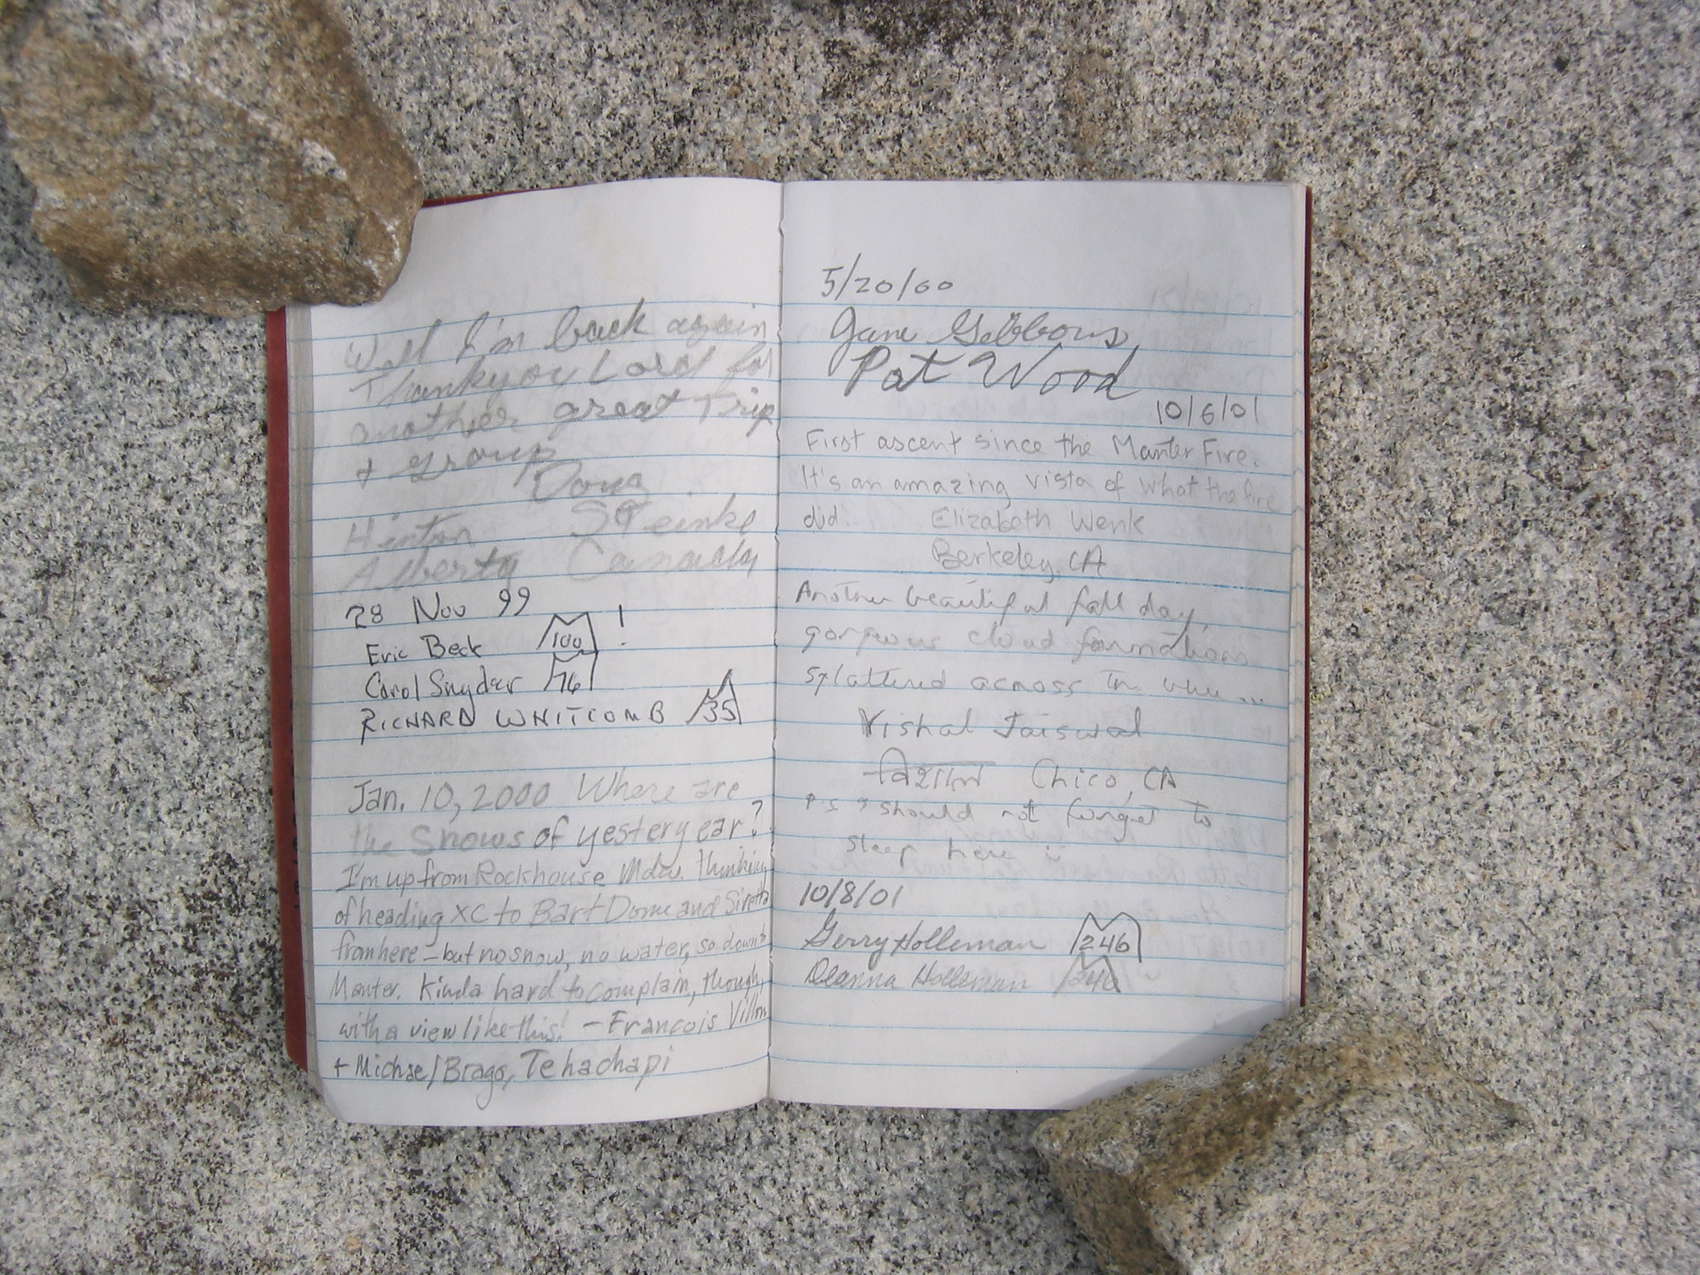 Well I'm back again
Thankyou Lord for
another great Trip
+ group
Doug
Hinton Steinke
Alberta Canada
28 Nov 99
Eric Beck 100 !
Carol Snyder 76
RICHARD WHITCOMB 35
Jan. 10, 2000 Where are
the snows of yesteryear?
I'm up from Rockhouse Mdw, thinking
of heading XC to Bart Dome and Siretta
from here - but no snow, no water, so down to
Manter. Kinda hard to complain, though,
with a view like this! - Francois Villon
+ Michael Brago, Tehachapi
5/20/00
Jane Gibbons
Pat Wood
10/6/01
First ascent since the Manter Fire.
It's an amazing vista of what the fire
did. Elizabeth Wenk
Berkeley, CA
Another beautiful fall day,
gorgeous cloud formations
splattered across the view...
Vishal Jaiswal
विशाल Chico, CA
PS should not forget to
sleep here
10/8/01
Gerry Holleman 246
Deanna Holleman 246